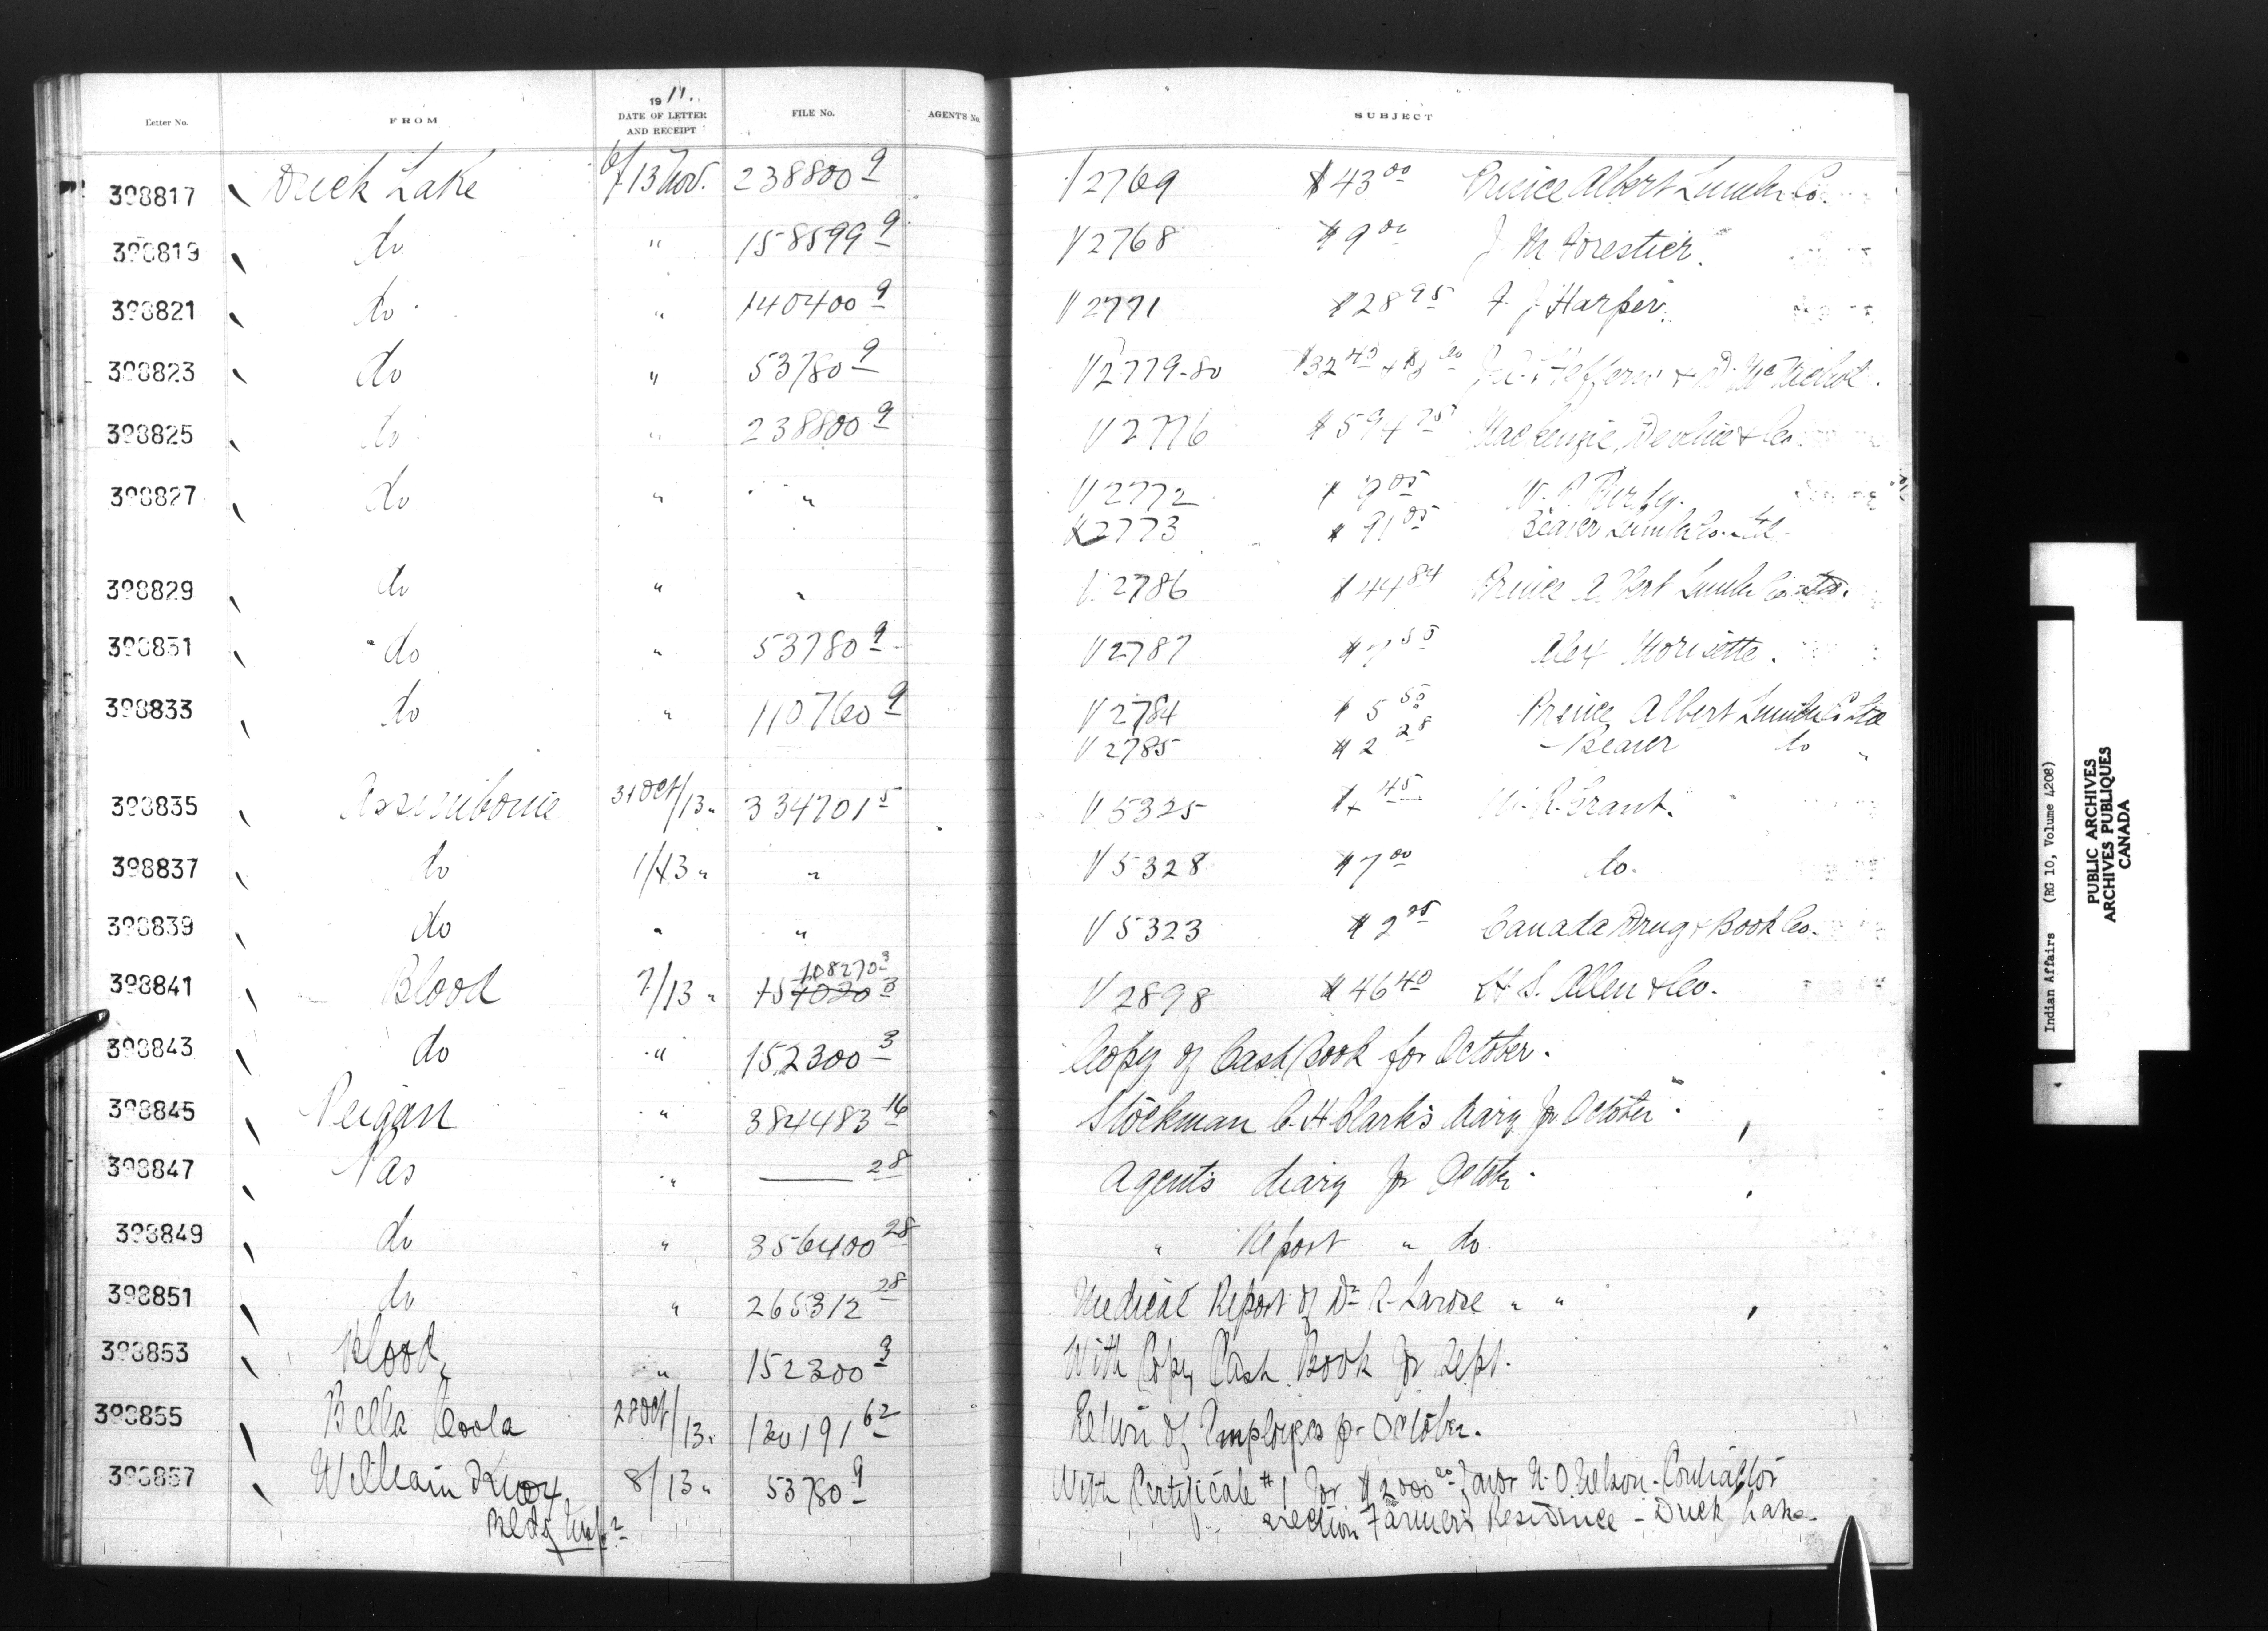 Letter No. FROM 1911. DATE OF LETTER AND RECEIPT FILE No. AGENT'S No. SUBJECT
398817 Duck Lake 6/13 Nov. 238800 9 V 2769 $43 00 Prince Albert Lumber Co.
398819 do " 158599 9 V 2768 $9 00 J M Forestier.
398821 do " 140400 9 V 2771 $28 95 F. J Harper.
398823 do " 53780 9 V 2779-80
398825 do " 238800 9 V 2776 $594 75 MacKenzie, Devline & Co.
398827 do " " V 2772
V 2773 $91 05 Beaver Lumber Co. Ltd.
398829 do " " V 2786 $44 84 Prince Albert Lumber Co Ltd.
398831 do " 53780 9 V 2787 $7 55 Alex Morisette.
398833 do " 110760 9 V 2784 $5 50 Prince Albert Lumber Co Ltd
V 2785 $2 28 Beaver do "
398835 Assiniboine 31 Oct/13 " 334701 5 V 5325 W. R. Grant.
398837 do 1/13 " " V 5328 $7 00 do.
398839 do " " V 5323 $2 25 Canada Drug & Book Co.
398841 Blood 7/13 " 108270 3 V 2898 $46 40 H. S. Allen & Co.
398843 do " 152300 3 Copy of Cash Book for October.
398845 Peigan " 384483 16 Stockman C. H Clark's diary for October.
398847 Pas " — 28 Agent's diary for October.
398849 do " 356400 28 " Report " do.
398851 do " 265312 28 Medical Report of Dr R. Larose " "
398853 Blood " 152300 3 With Copy Cash Book for Sept.
398855 Bella Coola 28 Oct/13 " 120191 62 Return of Employees for October.
398857 William Knox 8/13 " 53780 9 With Certificate #1 for $2000 00 favor N. O. Nelson - Contractor
Bldg Insp. erection Farmer's Residence - Duck Lake.
Indian Affairs (RG 10, Volume 4208)
PUBLIC ARCHIVES
ARCHIVES PUBLIQUES
CANADA